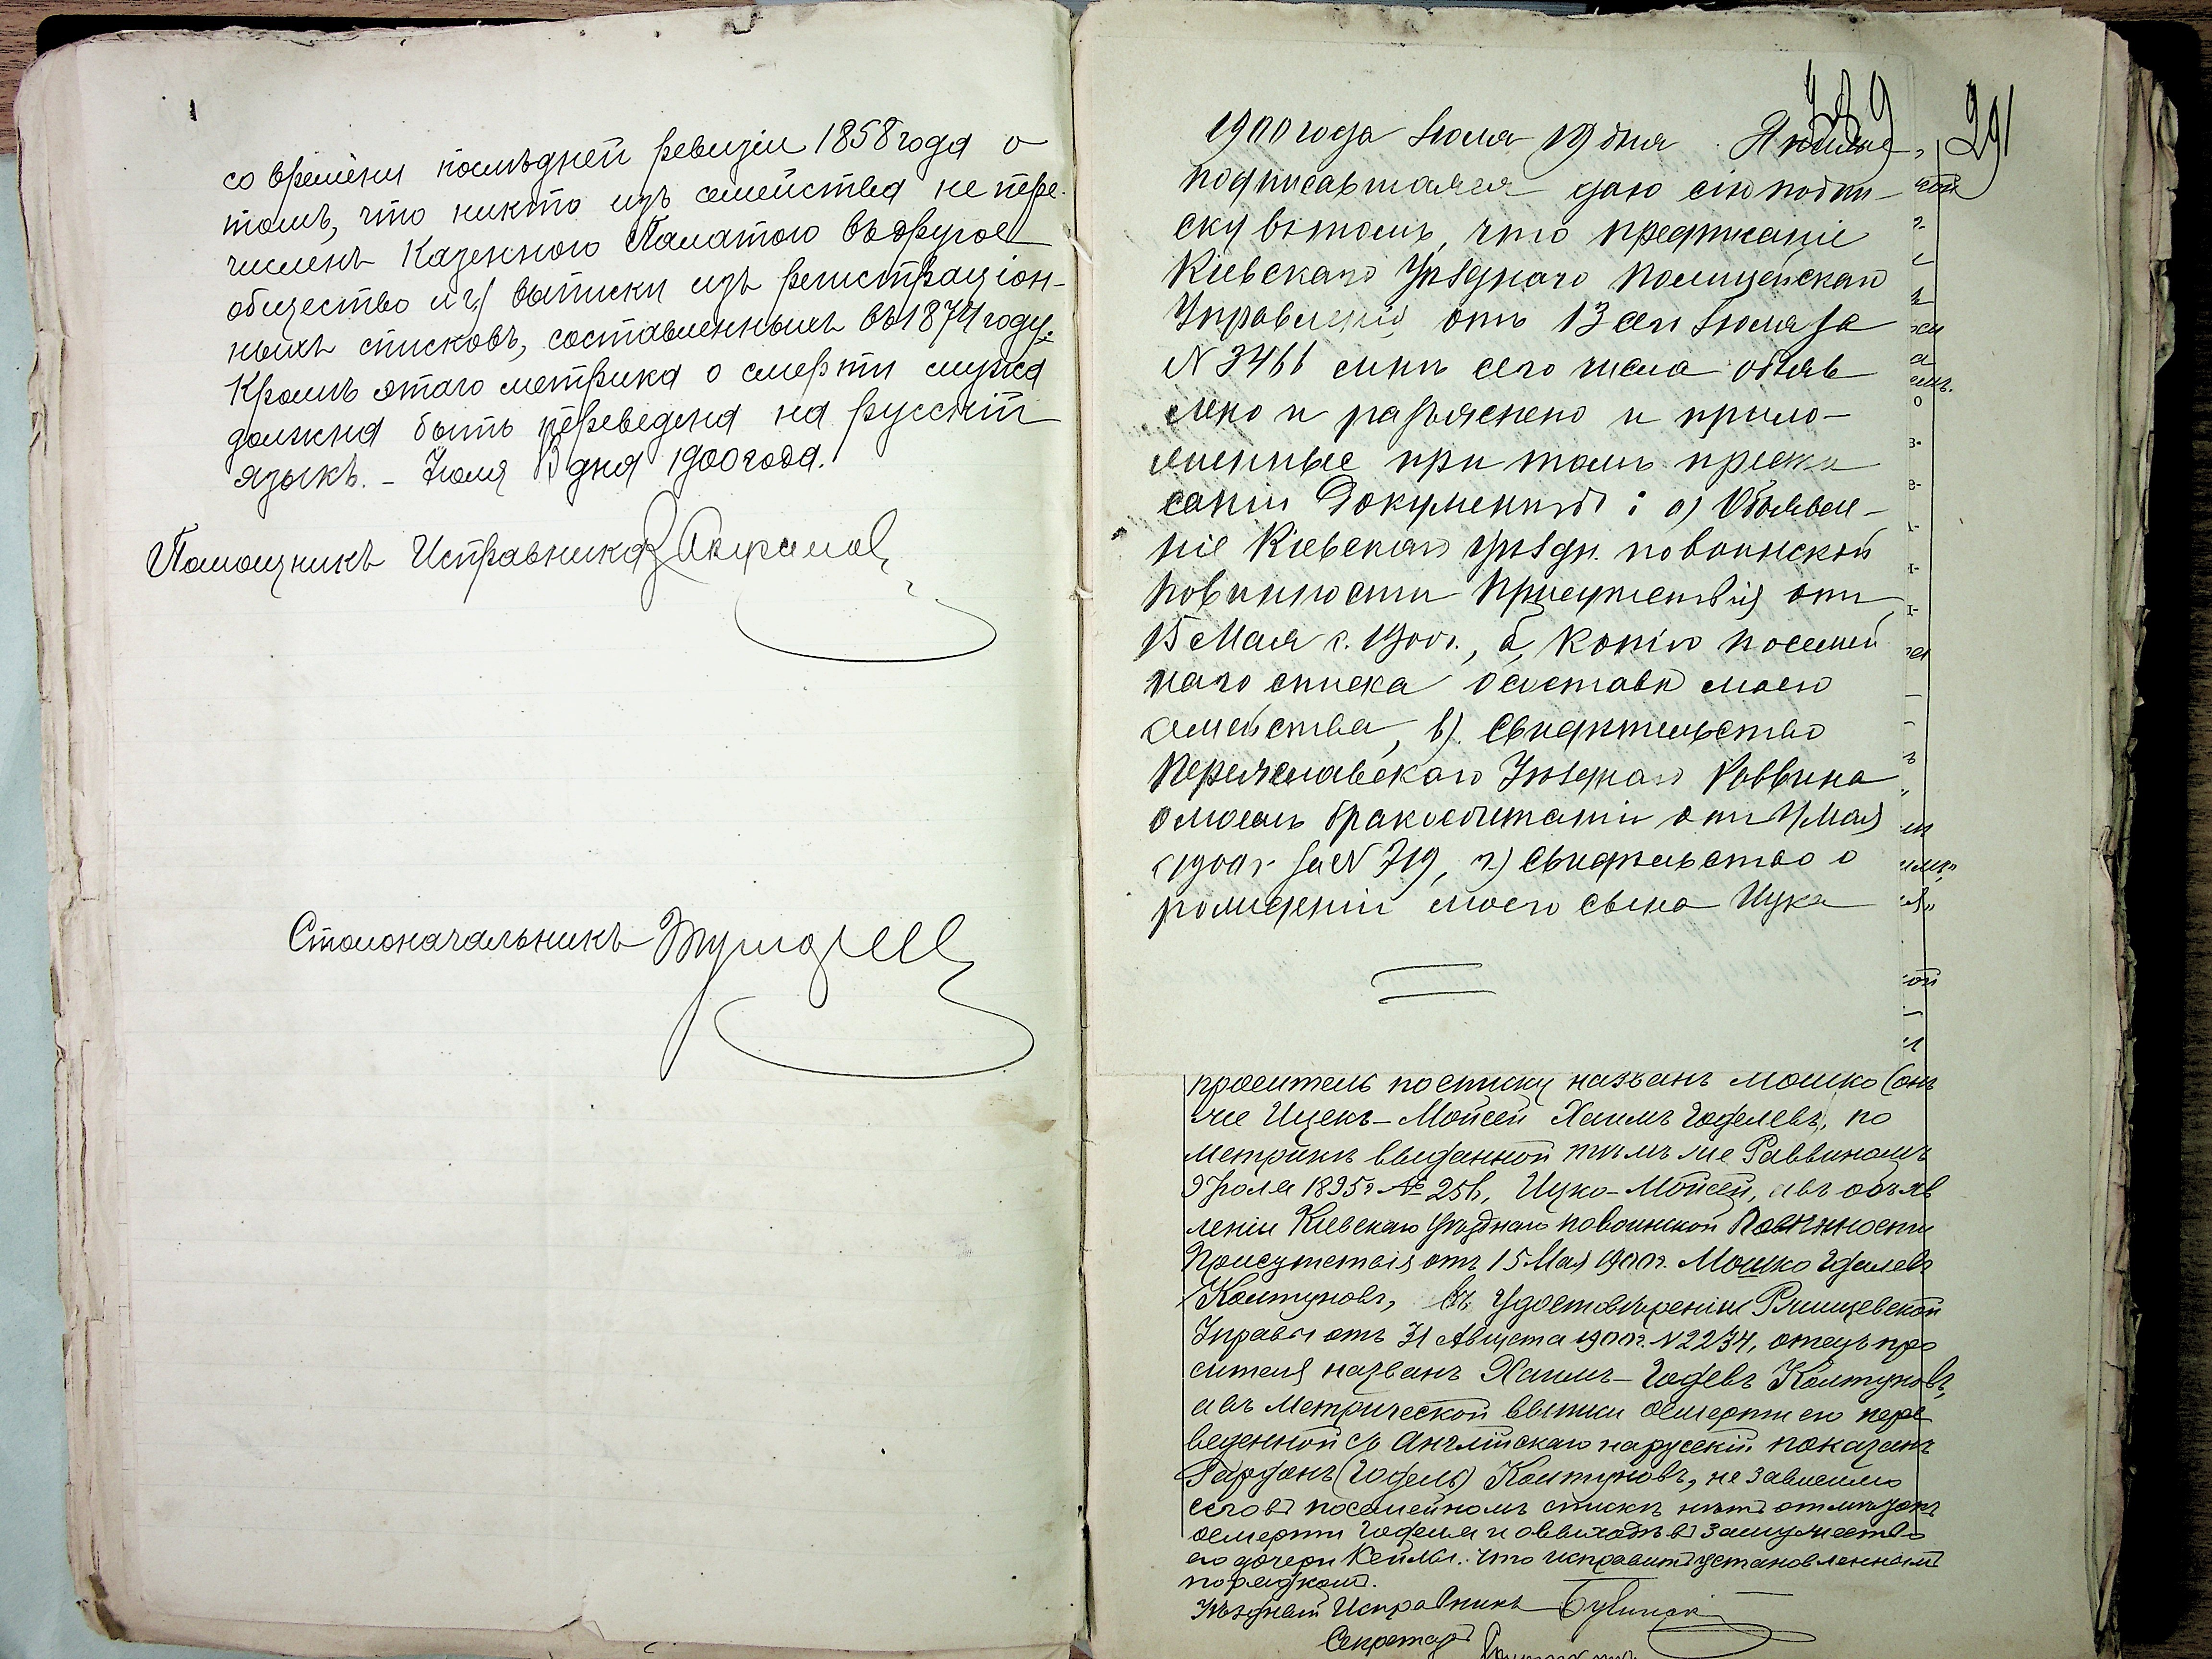 со времени послѣдней ревизіи 1858 года о
томъ, что никто изъ семейства не пере-
численъ Казенною Палатою въ другое
общество и г) выписки изъ регистраціон-
ныхъ списковъ, составленныхъ въ 1874 году.
Кромѣ этого метрика о смерти мужа
должна быть переведена на русскій
языкъ. – Іюля 13 дня 1900 года.
Помощникъ Исправника
Столоначальникъ
291
1900 года Іюля 19 дня Я ниже
подписавшаяся даю сію подпи-
ску въ томъ, что предписаніе
Кіевскаго Уѣзднаго Полицейскаго
Управленія отъ 13 сего Іюля за
N 3466 мнѣ сего числа объяв
лено и разъяснено и прило-
женные при томъ предпи
саніи Документы: а) Объявле-
ніе Кіевскаго Уѣздн. по воинской
повинности Присутствія отъ
15 Мая с. 1900 г., б, копію посемей
наго списка о составѣ моего
семейства, в) Свидѣтельство
Переяславскаго Уѣзднаго Раввина
о моемъ бракосочетаніи отъ 4 Мая
1900 г за N 719, г) Свидѣтельство о
рожденіи моего сына Ицка
проситель по списку названъ Мошко (онъ
же Ицекъ-Мойсей Хаимъ Годелевъ, по
метрикѣ выданной тѣмъ же Раввиномъ
9 Іюля 1895 г № 256, Ицко-Мойсей, а въ объяв
леніи Кіевскаго Уѣзднаго по воинской Повинности
Присутствія отъ 15 Мая 1900 г. Мошко Годелевъ
Колтуновъ, въ удостовѣреніи Ржищевской
Управы отъ 31 Августа 1900 г. N 2234, отецъ про
сителя названъ Хаимъ-Годевъ Колтуновъ,
а въ Метрической выписи о смерти его пере
веденной съ Англійскаго на русскій показанъ
Гардонъ (Годель) Колтуновъ, не зависимо
сего въ посемейномъ спискѣ нѣтъ отмѣтокъ
о смерти Годеля и о выходѣ въ замужество
его дочери Кейлы. что исправить установленнымъ
порядкомъ.
Уѣздный Исправникъ
Секретарь